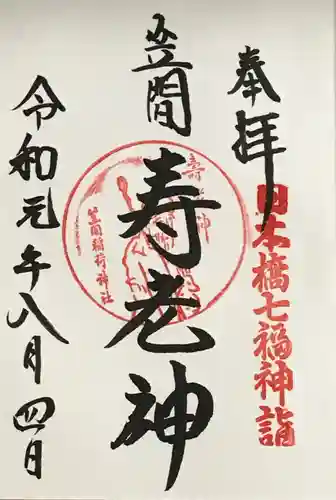 奉拝
日本橋七福神詣
笠間
寿老神
笠間稲荷神社
令和元年八月四日